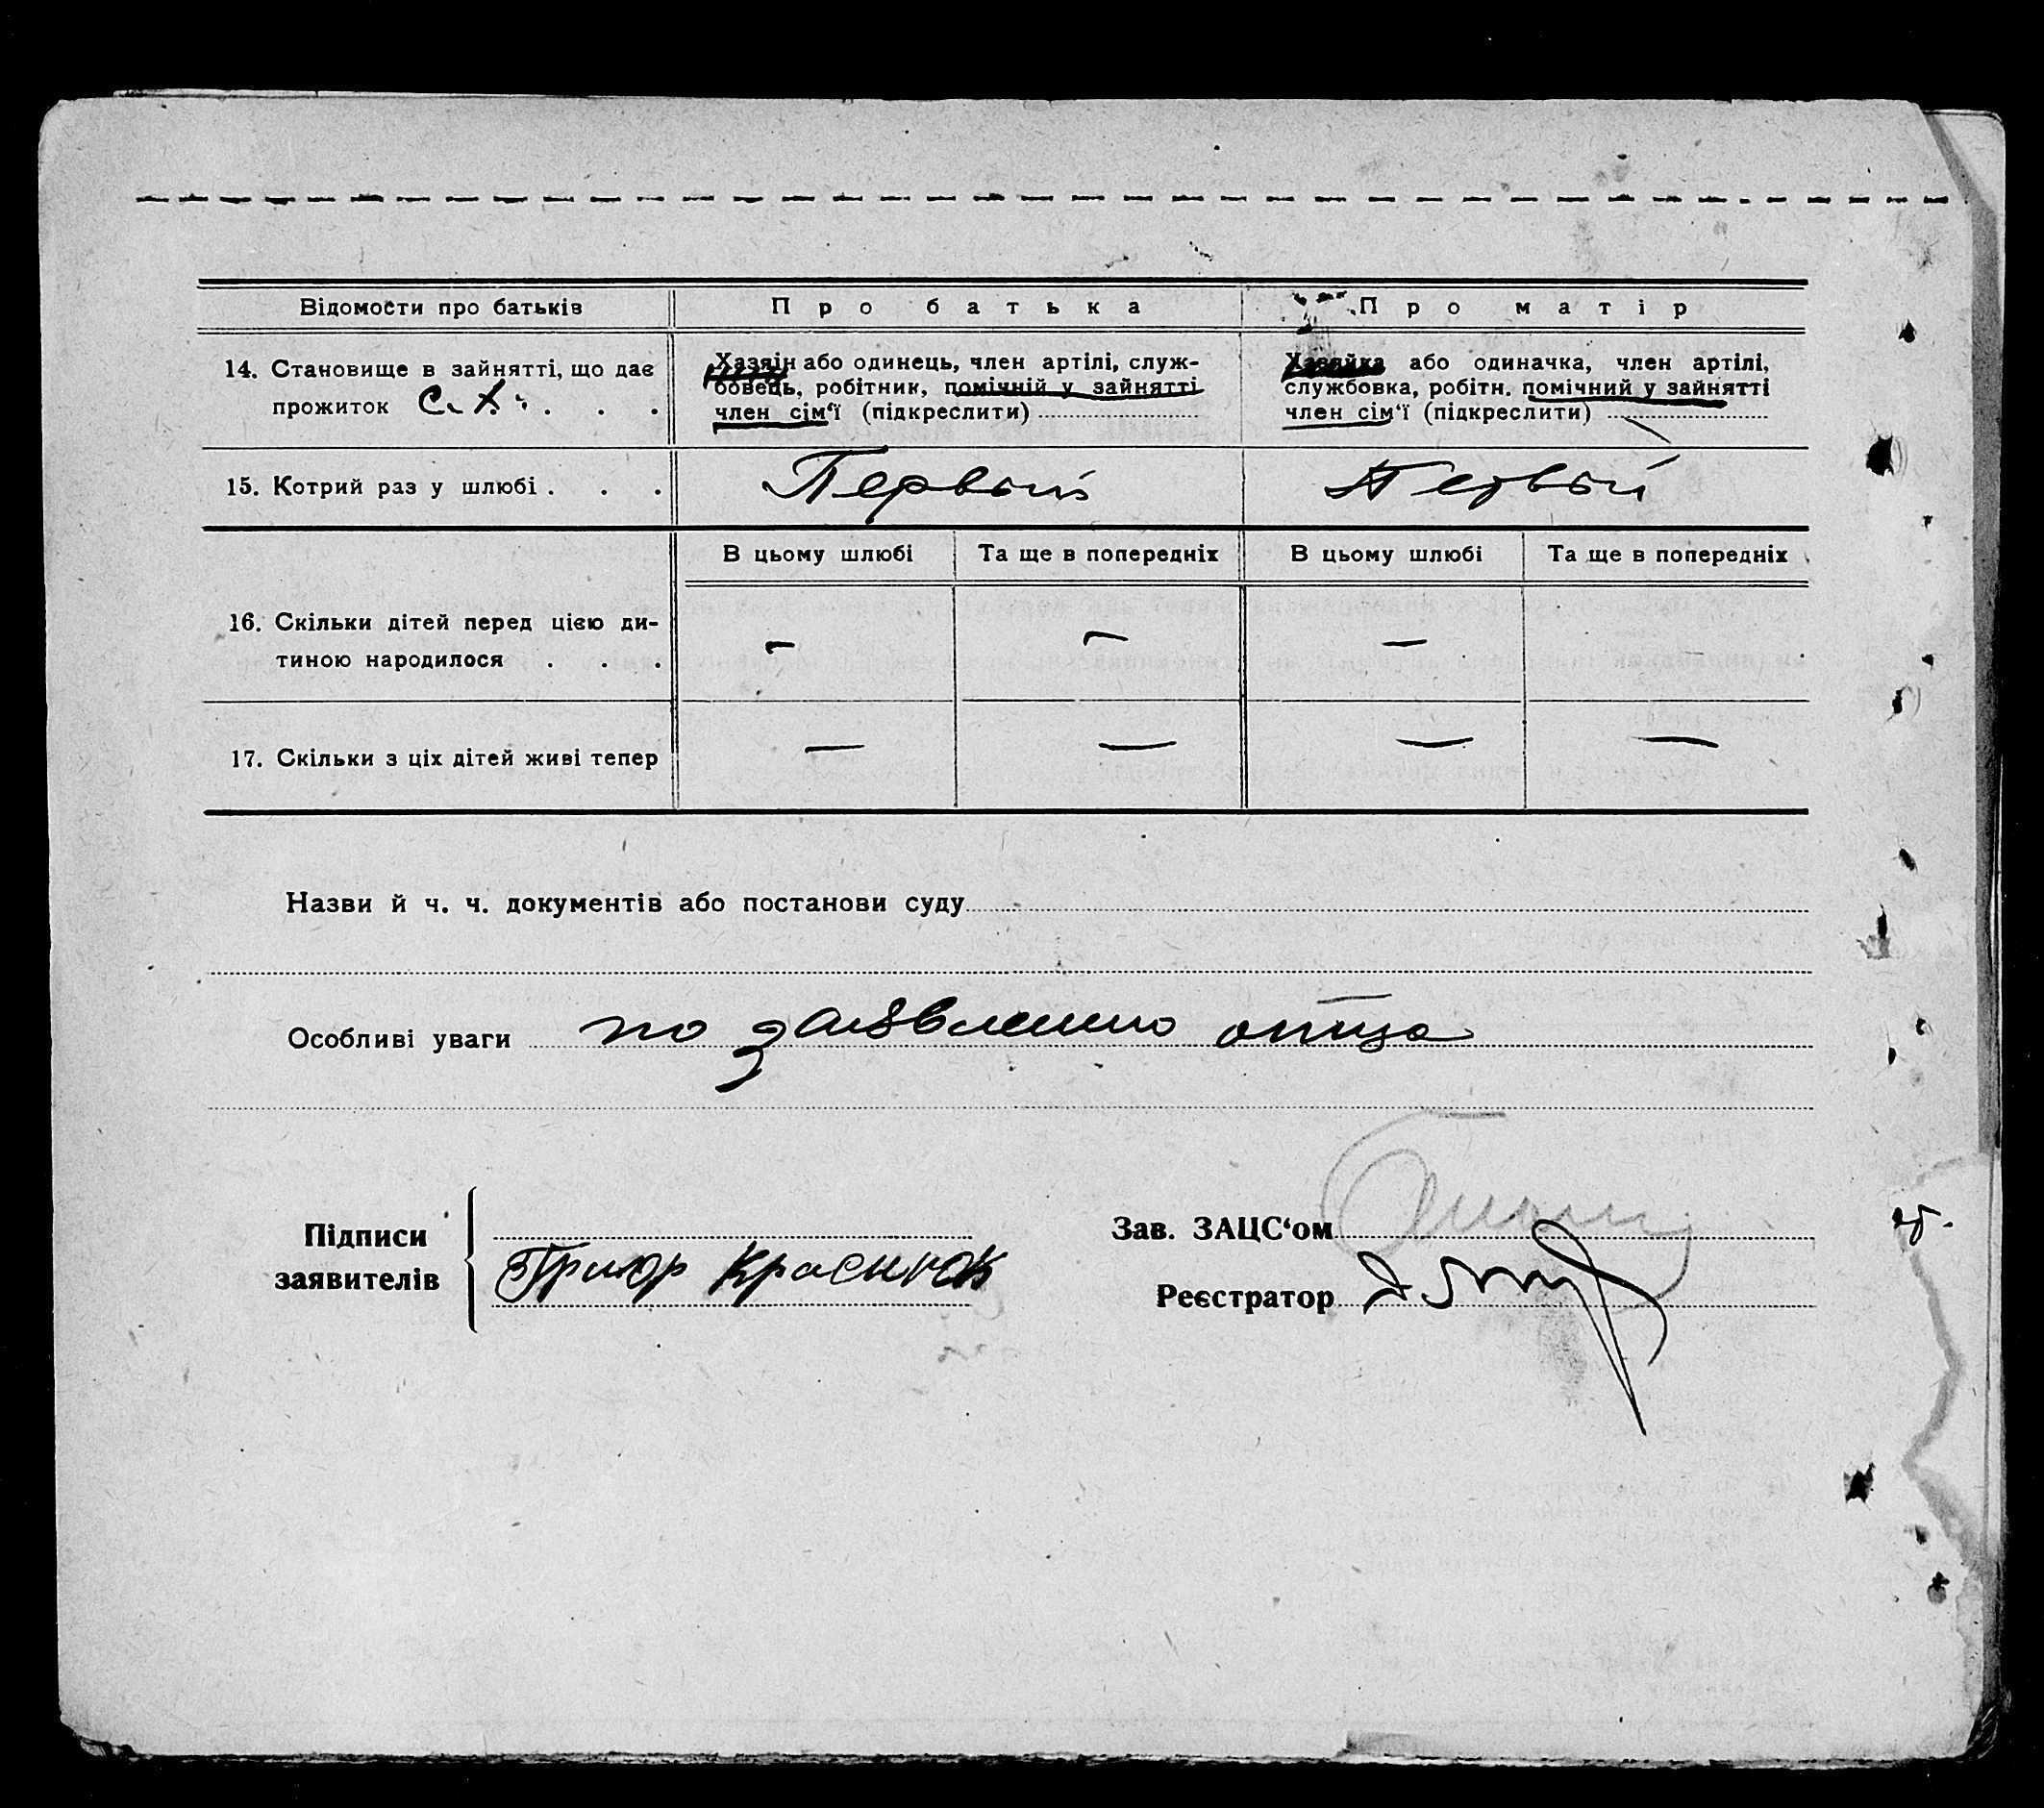 Відомости про батьків
Про батька
Про матір
14. Становище в зайнятті, що дає
прожиток С. Х.
Хазяін або одинець, член артілі, служ-
бовець, робітник, помічній у зайнятті
член сім‘ї (підкреслити)
Хазяйка або одиначка, член артілі,
службовка, робітн. помічний у зайнятті
член сім‘ї (підкреслити)
15. Котрий раз у шлюбі
Первый
Первый
В цьому шлюбі
Та ще в попередніх
В цьому шлюбі
Та ще в попередніх
16. Скільки дітей перед цією ди-
тиною народилося
—
—
—
17. Скільки з ціх дітей живі тепер
—
—
—
—
Назви й ч. ч. документів або постанови суду
Особливі уваги по заявлению отца
Підписи
заявителів
Григор Краснюк
Зав. ЗАЦС‘ом
Реєстратор